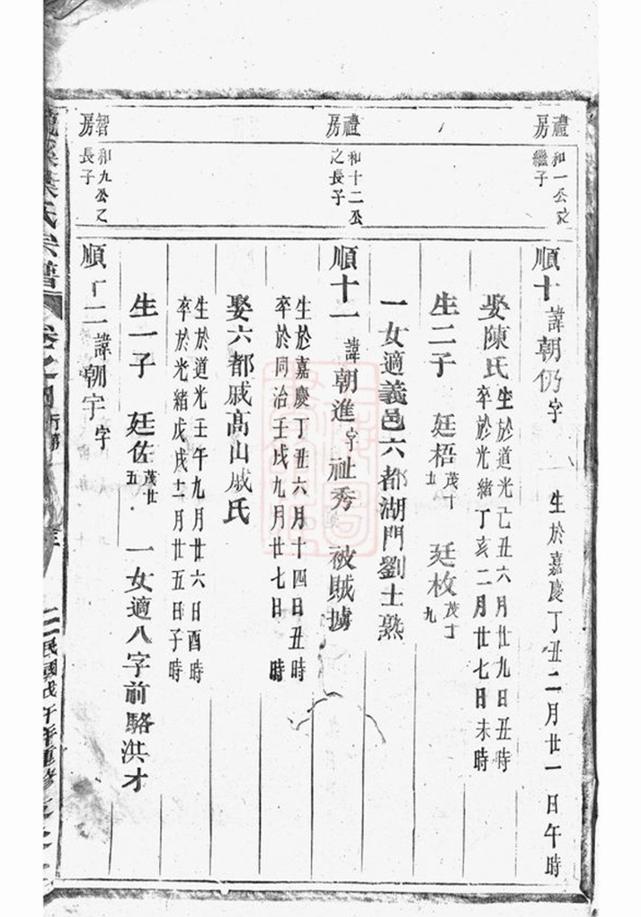 禮房 和一公之繼子
順十 諱朝仍 字 生於嘉慶丁丑二月廿一日午時
娶陳氏 生於道光己丑六月廿九日丑時
卒於光緒丁亥二月廿七日未時
生二子 廷梧 茂十五 廷枚 茂十九
一女適義邑六都湖門劉士熟
禮房 和十二公之長子
順十一 諱朝進 字祉秀 被賊擄
生於嘉慶丁丑六月十四日丑時
卒於同治壬戌九月廿七日
娶六都戚高山戚氏
生於道光壬午九月廿六日酉時
卒於光緒戊戌十二月廿五日子時
生一子 廷佐 茂廿五 一女適八字前駱洪才
智房 和九公之長子
順十二 諱朝宇 字
葉氏宗譜 卷之 行第
民國戊午年重修